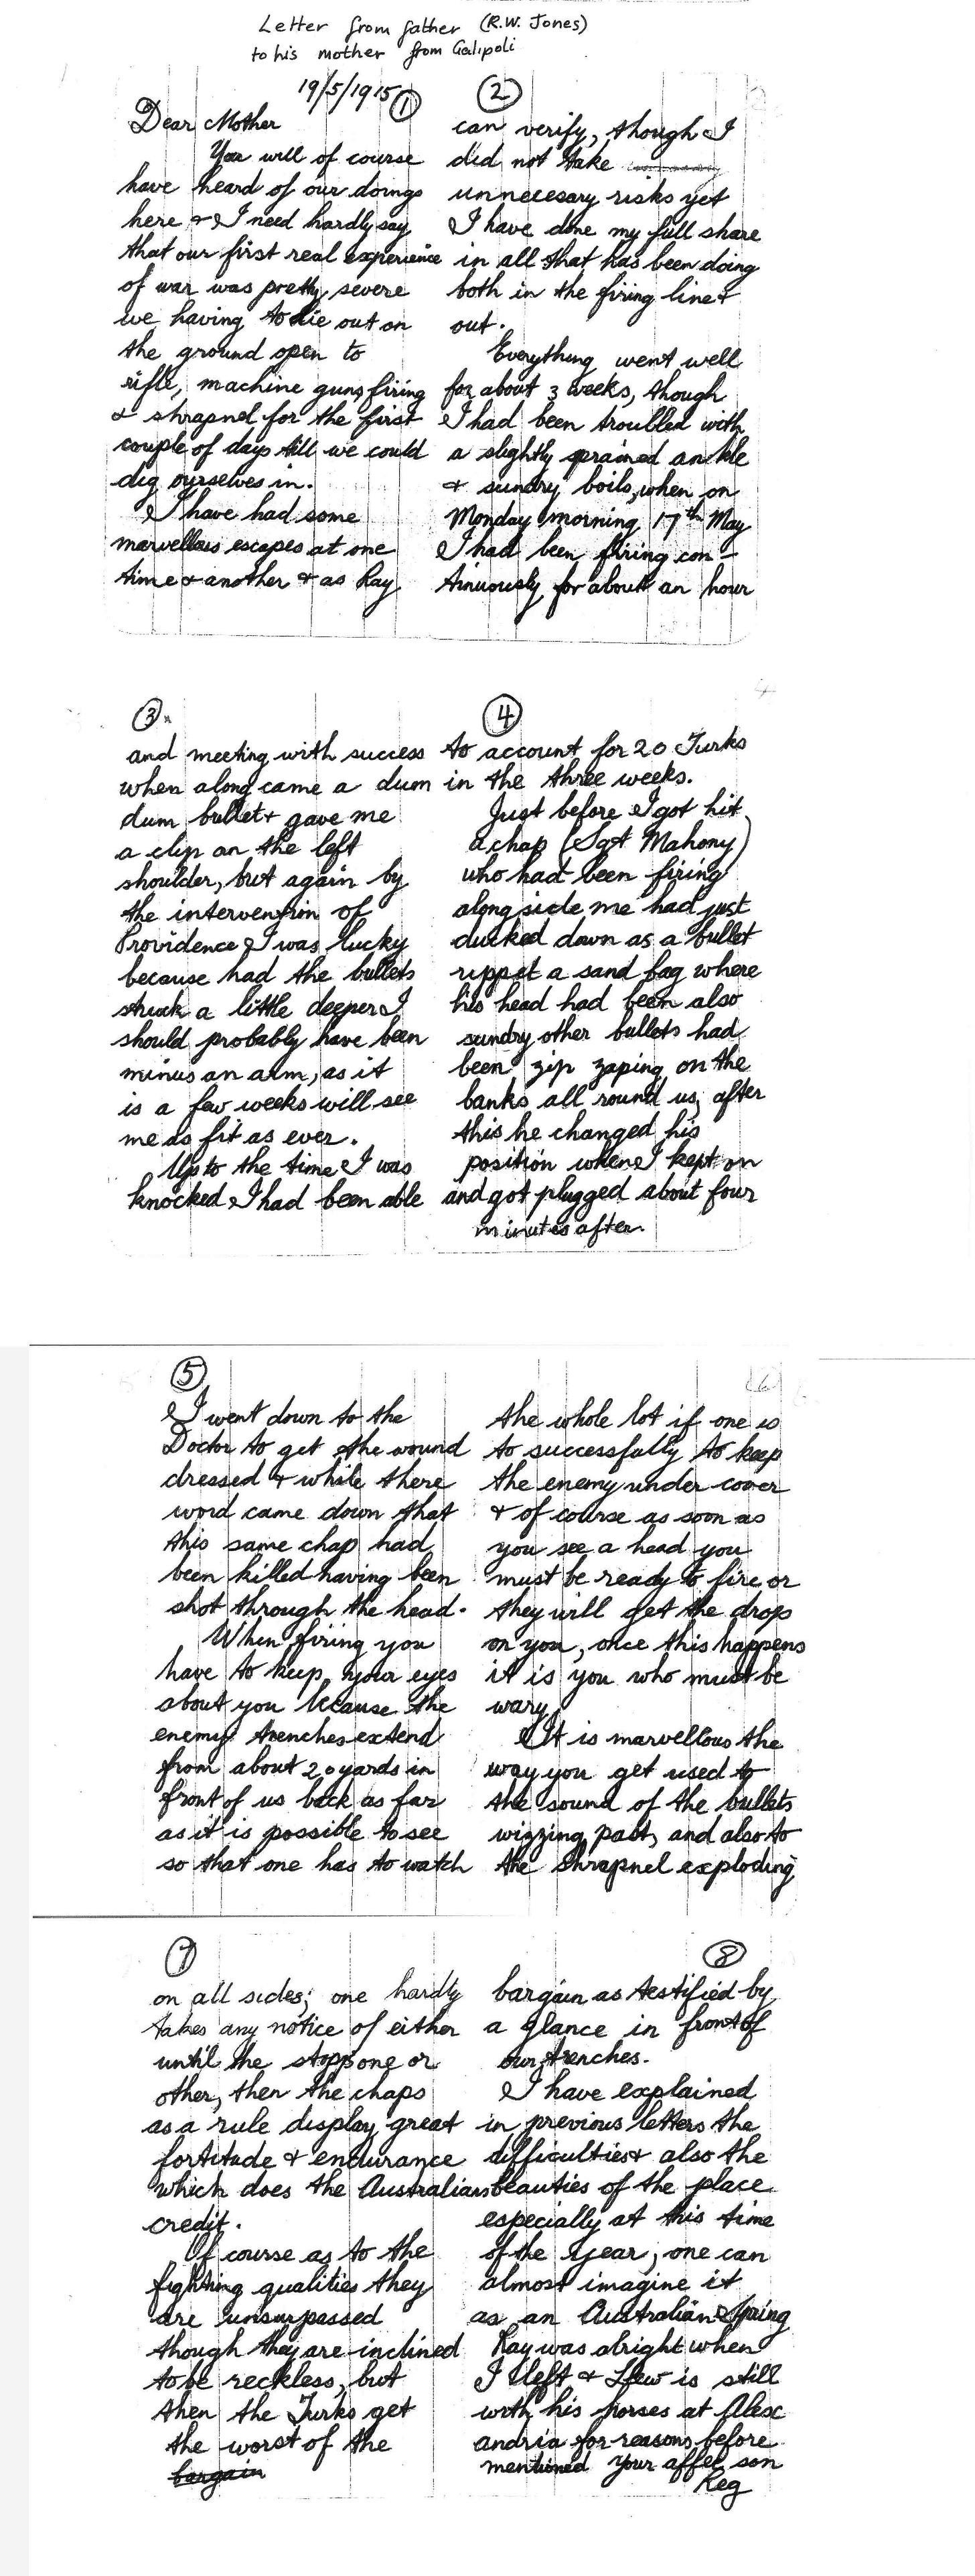 Letter from father (R.W. Jones)
to his mother from Galipoli
19/5/1915
①
Dear Mother
You will of course
have heard of our doings
here & I need hardly say
that our first real experience
of war was pretty severe
we having to lie out on
the ground open to
rifle, machine guns firing
& shrapnel for the first
couple of days till we could
dig ourselves in.
I have had some
marvellous escapes at one
time & another & as Ray
②
can verify, though I
did not take
unnecesary risks yet
I have done my full share
in all that has been doing
both in the firing line &
out.
Everything went well
for about 3 weeks, though
I had been troubled with
a slightly sprained ankle
& sundry boils, when on
Monday morning 17th May
I had been firing con-
tinuously for about an hour
③
and meeting with success
when along came a dum
dum bullet & gave me
a clip on the left
shoulder, but again by
the intervention of
Providence I was lucky
because had the bullets
struck a little deeper I
should probably have been
minus an arm, as it
is a few weeks will see
me as fit as ever.
Up to the time I was
knocked I had been able
④
to account for 20 Turks
in the three weeks.
Just before I got hit
a chap (Sgt Mahony)
who had been firing
alongside me had just
ducked down as a bullet
rippet a sand bag where
his head had been also
sundry other bullets had
been zip zaping on the
banks all round us, after
this he changed his
position when I kept on
and got plugged about four
minutes after.
⑤
I went down to the
Doctor to get the wound
dressed & while there
word came down that
this same chap had
been killed having been
shot through the head.
When firing you
have to keep your eyes
about you because the
enemy trenches extend
from about 20 yards in
front of us back as far
as it is possible to see
so that one has to watch
6
the whole lot if one is
to successfully to keep
the enemy under cover
& of course as soon as
you see a head you
must be ready to fire or
they will get the drop
on you, once this happens
it is you who must be
wary.
It is marvellous the
way you get used to
the sound of the bullets
wizzing past, and also to
the shrapnel exploding
⑦
on all sides; one hardly
takes any notice of either
until the stopp one or
other, then the chaps
as a rule display great
fortitude & endurance
which does the Australians
credit.
Of course as to the
fighting qualities they
are unsurpassed
though they are inclined
to be reckless, but
then the Turks get
the worst of the
bargain
⑧
bargain as testified by
a glance in front of
our trenches.
I have explained
in previous letters the
difficulties & also the
beauties of the place
especially at this time
of the year, one can
almost imagine it
as an Australian Spring
Ray was alright when
I left & Lew is still
with his horses at Alex
andria for reasons before
mentioned Your affec son
Reg